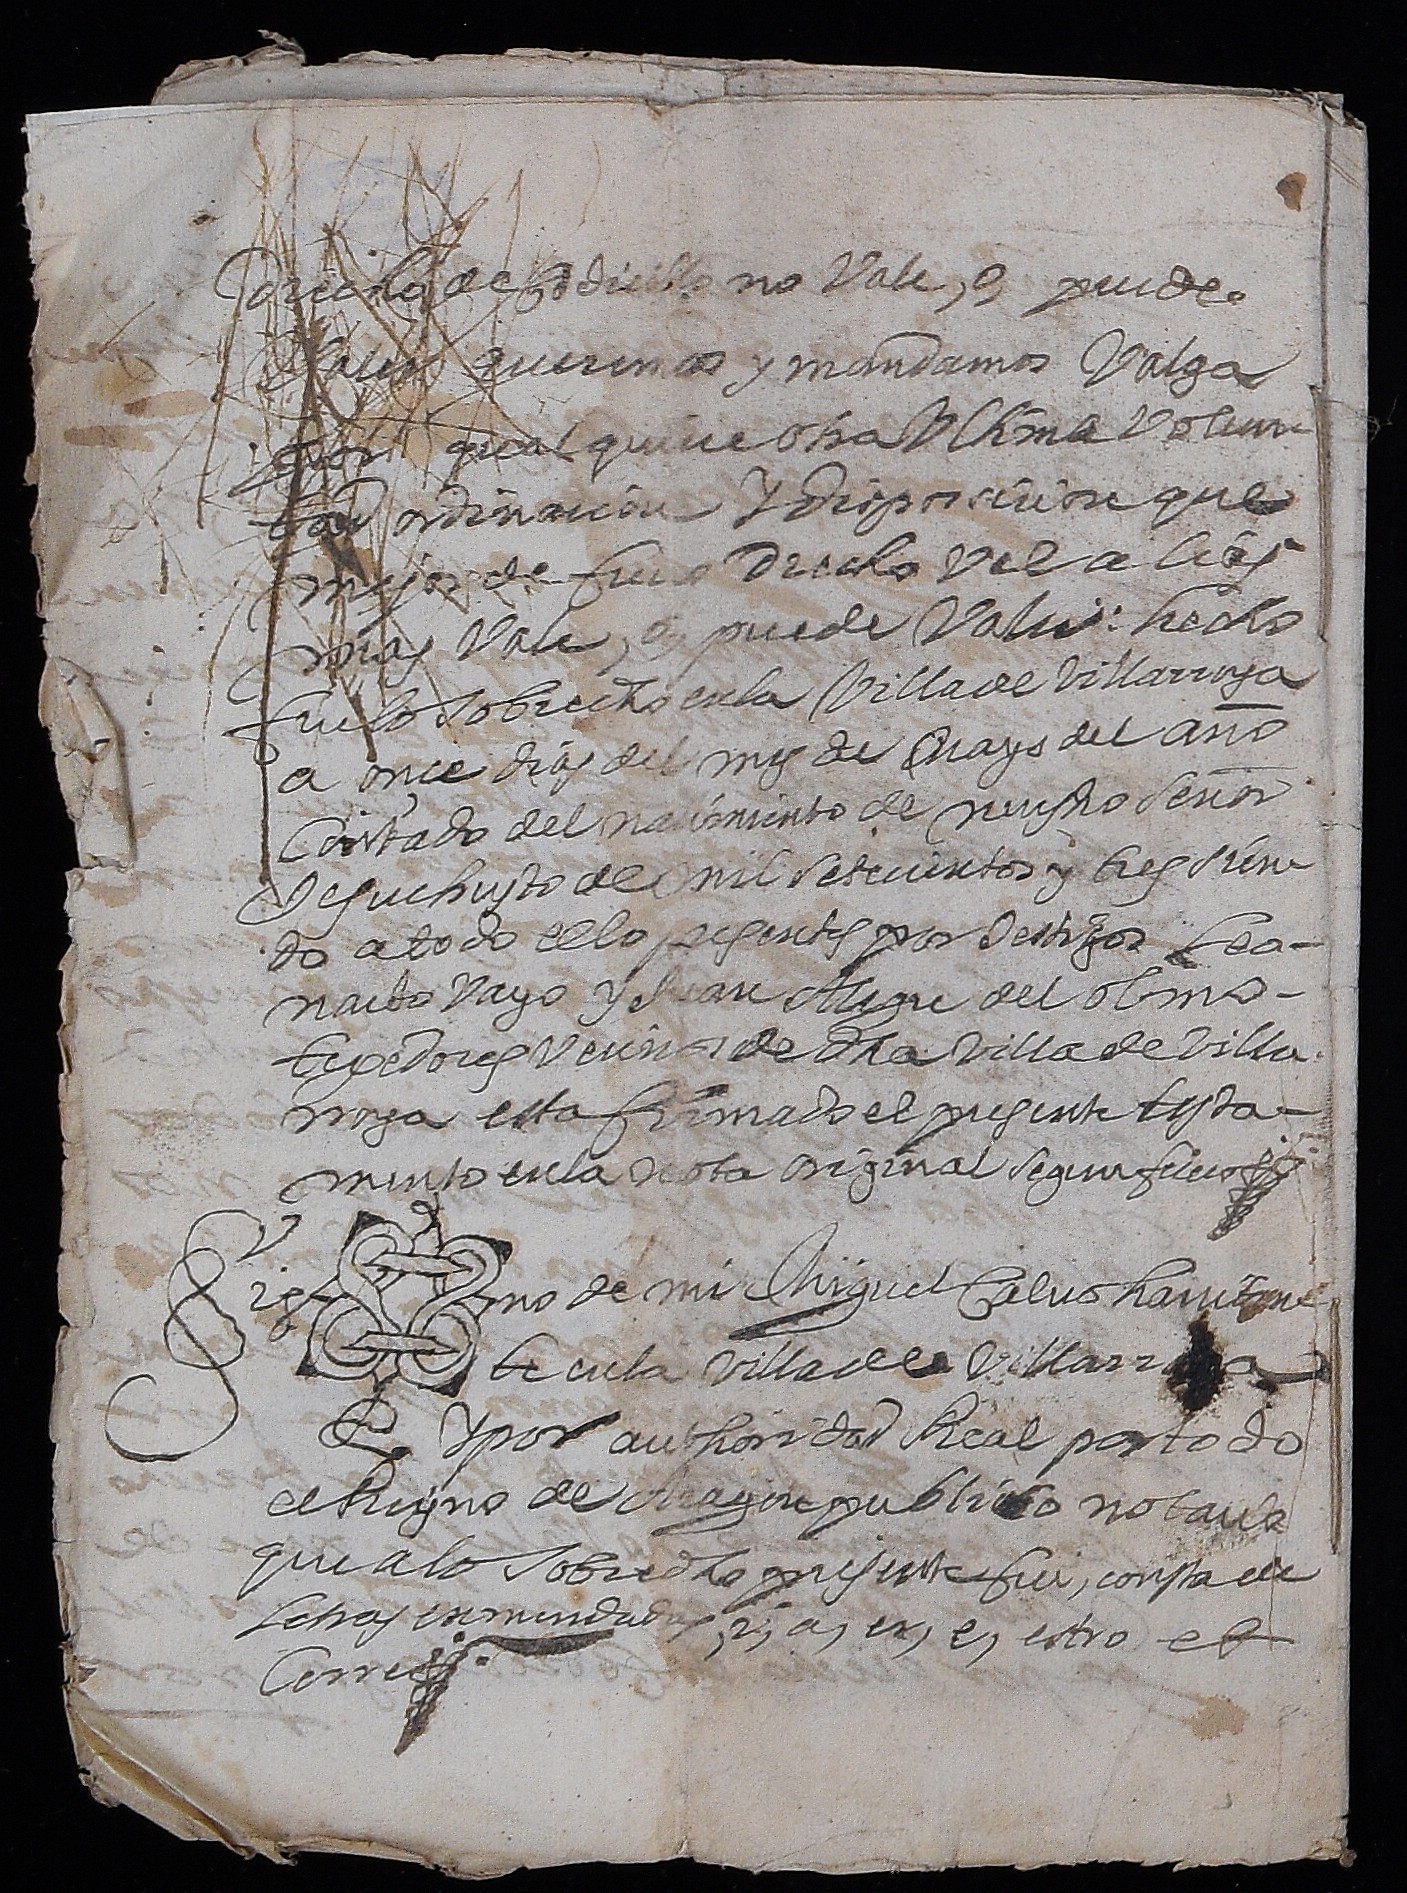 drecho de Codicillo no Vale, o, puede
Valer queremos y mandamos Valga
por qualquiere otra Ultima Volun
tad ordinacion Y disposicion que
mejor de fuero Drecho Vel alias
mas Vale, o, puede Valer: hecho
fue lo sobredho en la Villa de Villarroya
a onçe dias del mes de Mayo del año
Contado del nacimiento de nuestro Señor
Jesuchristo de mil setecientos y tres sien
do a todo ello presentes por testigos Leo-
nardo Vayo y Juan Alegre del olmo-
texedores Vecinos de dha Villa de Villa
rroya esta firmado el presente testa-
mento en la nota original segun fuero
Sig no de mi Miguel Calvo havitan
te en la Villa de Villarroya
Y por authoridad Real por todo
el Reyno de Aragon publico notario
que a lo sobredho presente fui, consta de
letras enmendadas, i, a, er, e, estro et
Cerre